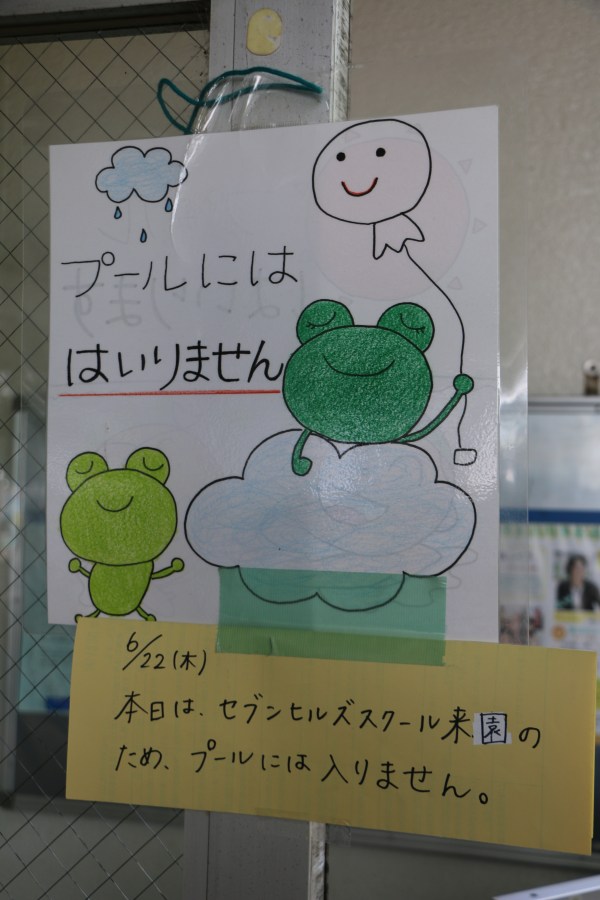 プールには
はいりません
6/22(木)
本日は、セブンヒルズスクール来園の
ため、プールには入りません。